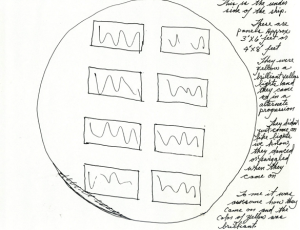 This is the under
side of the ship.
These are
panels. Approx
3'X6' feet or
4'X8' feet
They were
yellow a
brilliant yellow
lights, and
they came
on in a
alternate
progression
They didn't
just come on
like lights
we know,
they danced
when they
came on
To me it was
awesome how they
came on and the
color of yellow was
brilliant.